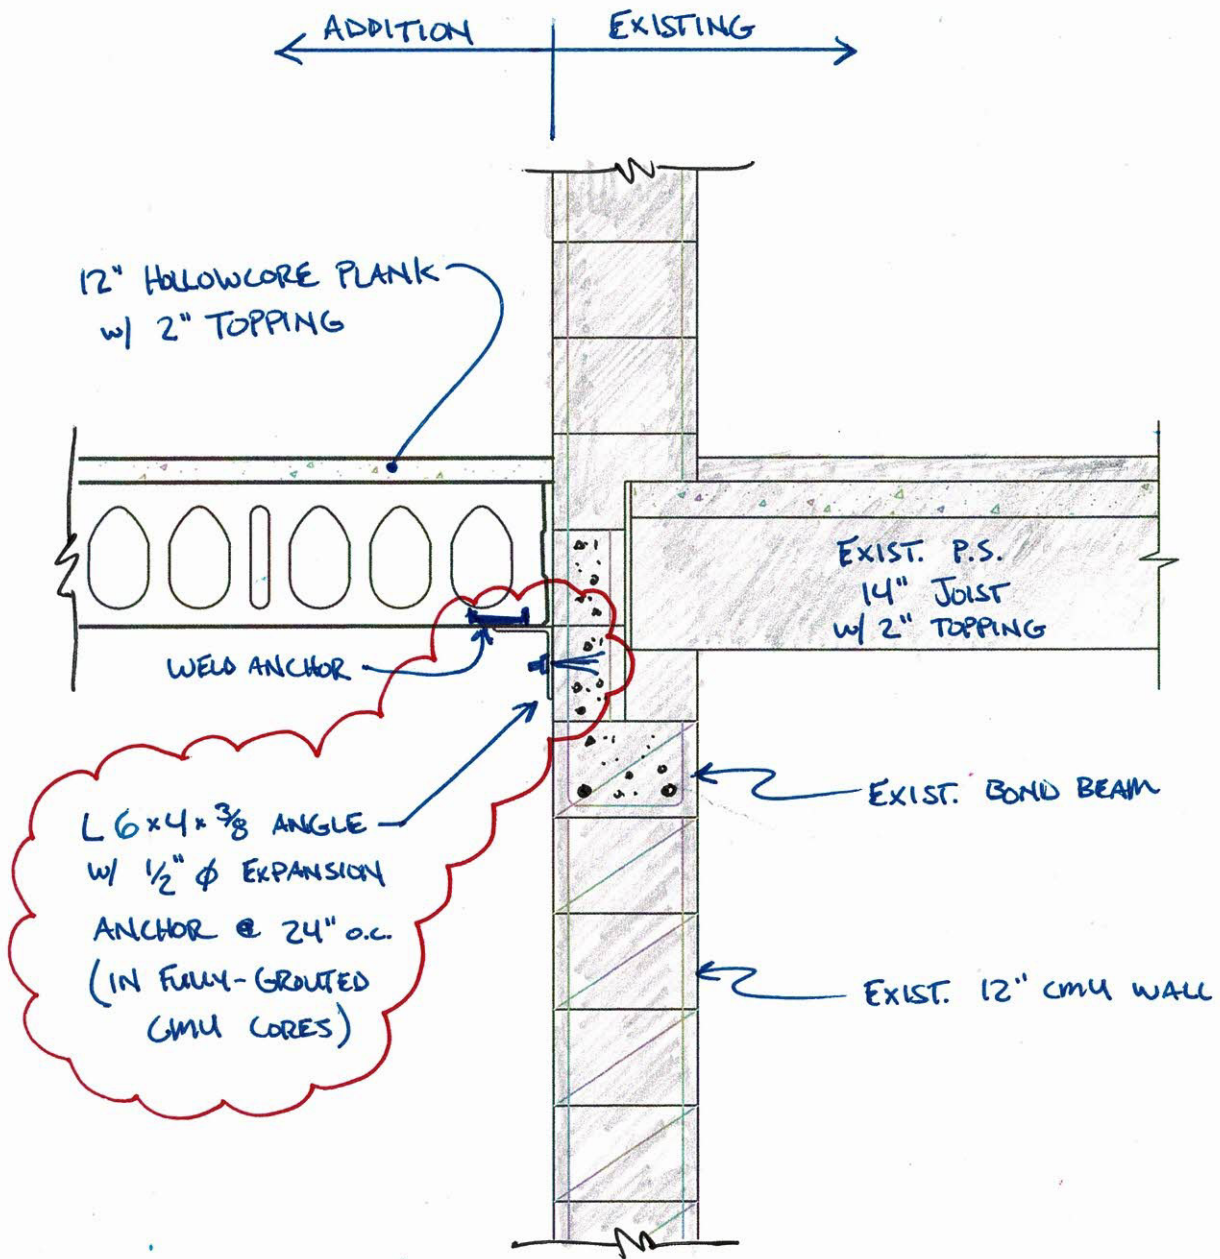 ADDITION
EXISTING
12" HOLLOWCORE PLANK
w/ 2" TOPPING
EXIST. P.S.
14" JOIST
w/ 2" TOPPING
WELD ANCHOR
EXIST. BOND BEAM
L 6 x 4 x 3/8 ANGLE
w/ 1/2" ϕ EXPANSION
ANCHOR @ 24" o.c.
(IN FULLY-GROUTED
CMU CORES)
EXIST. 12" CMU WALL